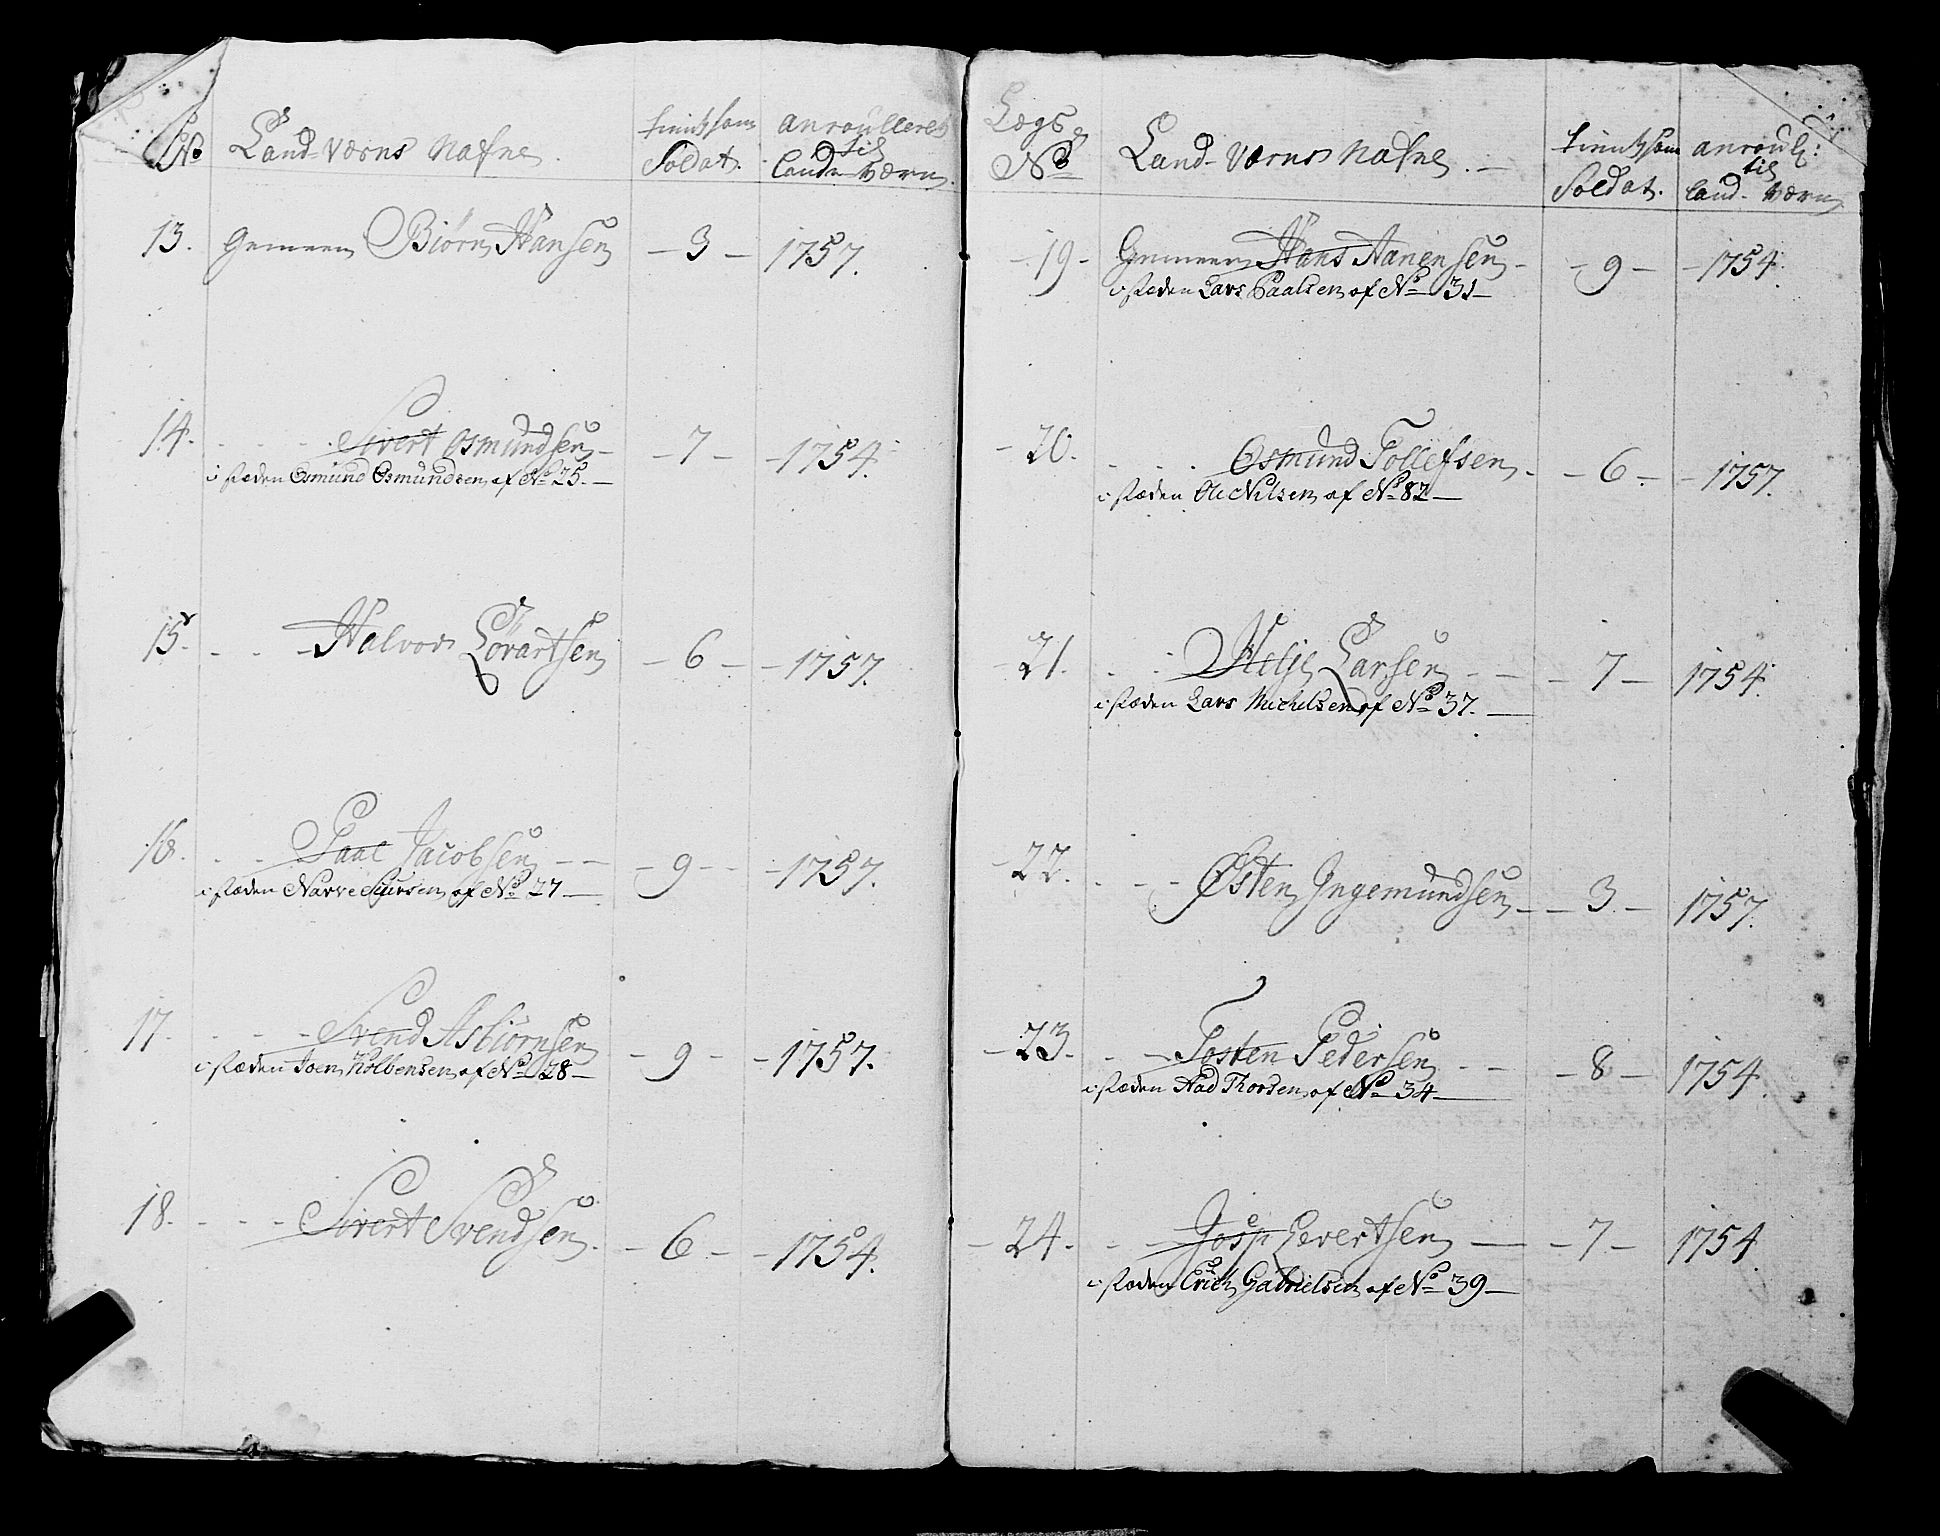 No Land-Værns Nafne. tient som Soldat. anroulleret til Land-Værn.
13. Gemeen Biørn Hansen – 3 – 1757.
14. Sivert Osmundsen – 7 – 1754.
i stæden Osmund Osmundsen af No 25.
15. Halvor Lövartsen – 6 – 1757.
16. Paal Jacobsen – 9 – 1757.
i stæden Narve Siursen af No 27
17. Svend Asbiørnsen – 9 – 1757.
i stæden Joen Kolbensen af No 28
18. Sivert Svendsen. – 6 – 1754.
Lægs No Land-Værns Nafne. tient som Soldat. anroull: til Land-Værn
19 Gemeen Hans Aanensen – 9 – 1754.
i stæden Lars Paalsen af No 31
20. Osmund Tollefsen – 6 – 1757.
i stæden Ole Nilsen af No 82
21. Helje Larsen – 7 – 1754.
i stæden Lars Michelsen af No 37.
22. Østen Ingemundsen – 3 – 1757.
23. Tosten Pedersen – 8 – 1754.
i stæden Aad Thorsen af No 34
24. Josep Levertsen – 7 – 1754
i stæden Erich Gabrielsen af No 39